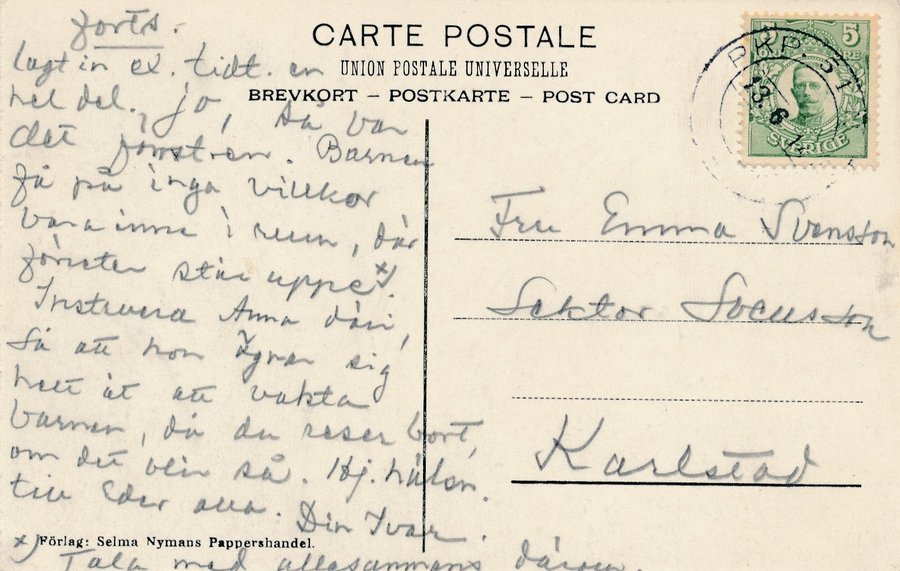 forts.
CARTE POSTALE
UNION POSTALE UNIVERSELLE
BREVKORT – POSTKARTE – POST CARD
5
SVERIGE
PKP. 31
13. 6
lagt in ex. tidt. en
hel del. jo, så var
det fönstren. Barnen
få på inga villkor
vara inne i rum, där
fönster står uppe x)
Instruera Anna däri,
så att hon ägnar sig
helt åt att vakta
barnen, då du reser bort,
om det blir så. Hj. häls.
till Eder alla. Din Ivar.
Fru Emma Svensson
Lektor
Karlstad
Förlag: Selma Nymans Pappershandel.
x) Tala med allesammans därom.